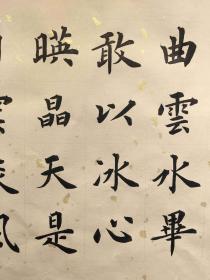 曲雲水畢
敢以冰心
暎晶天是